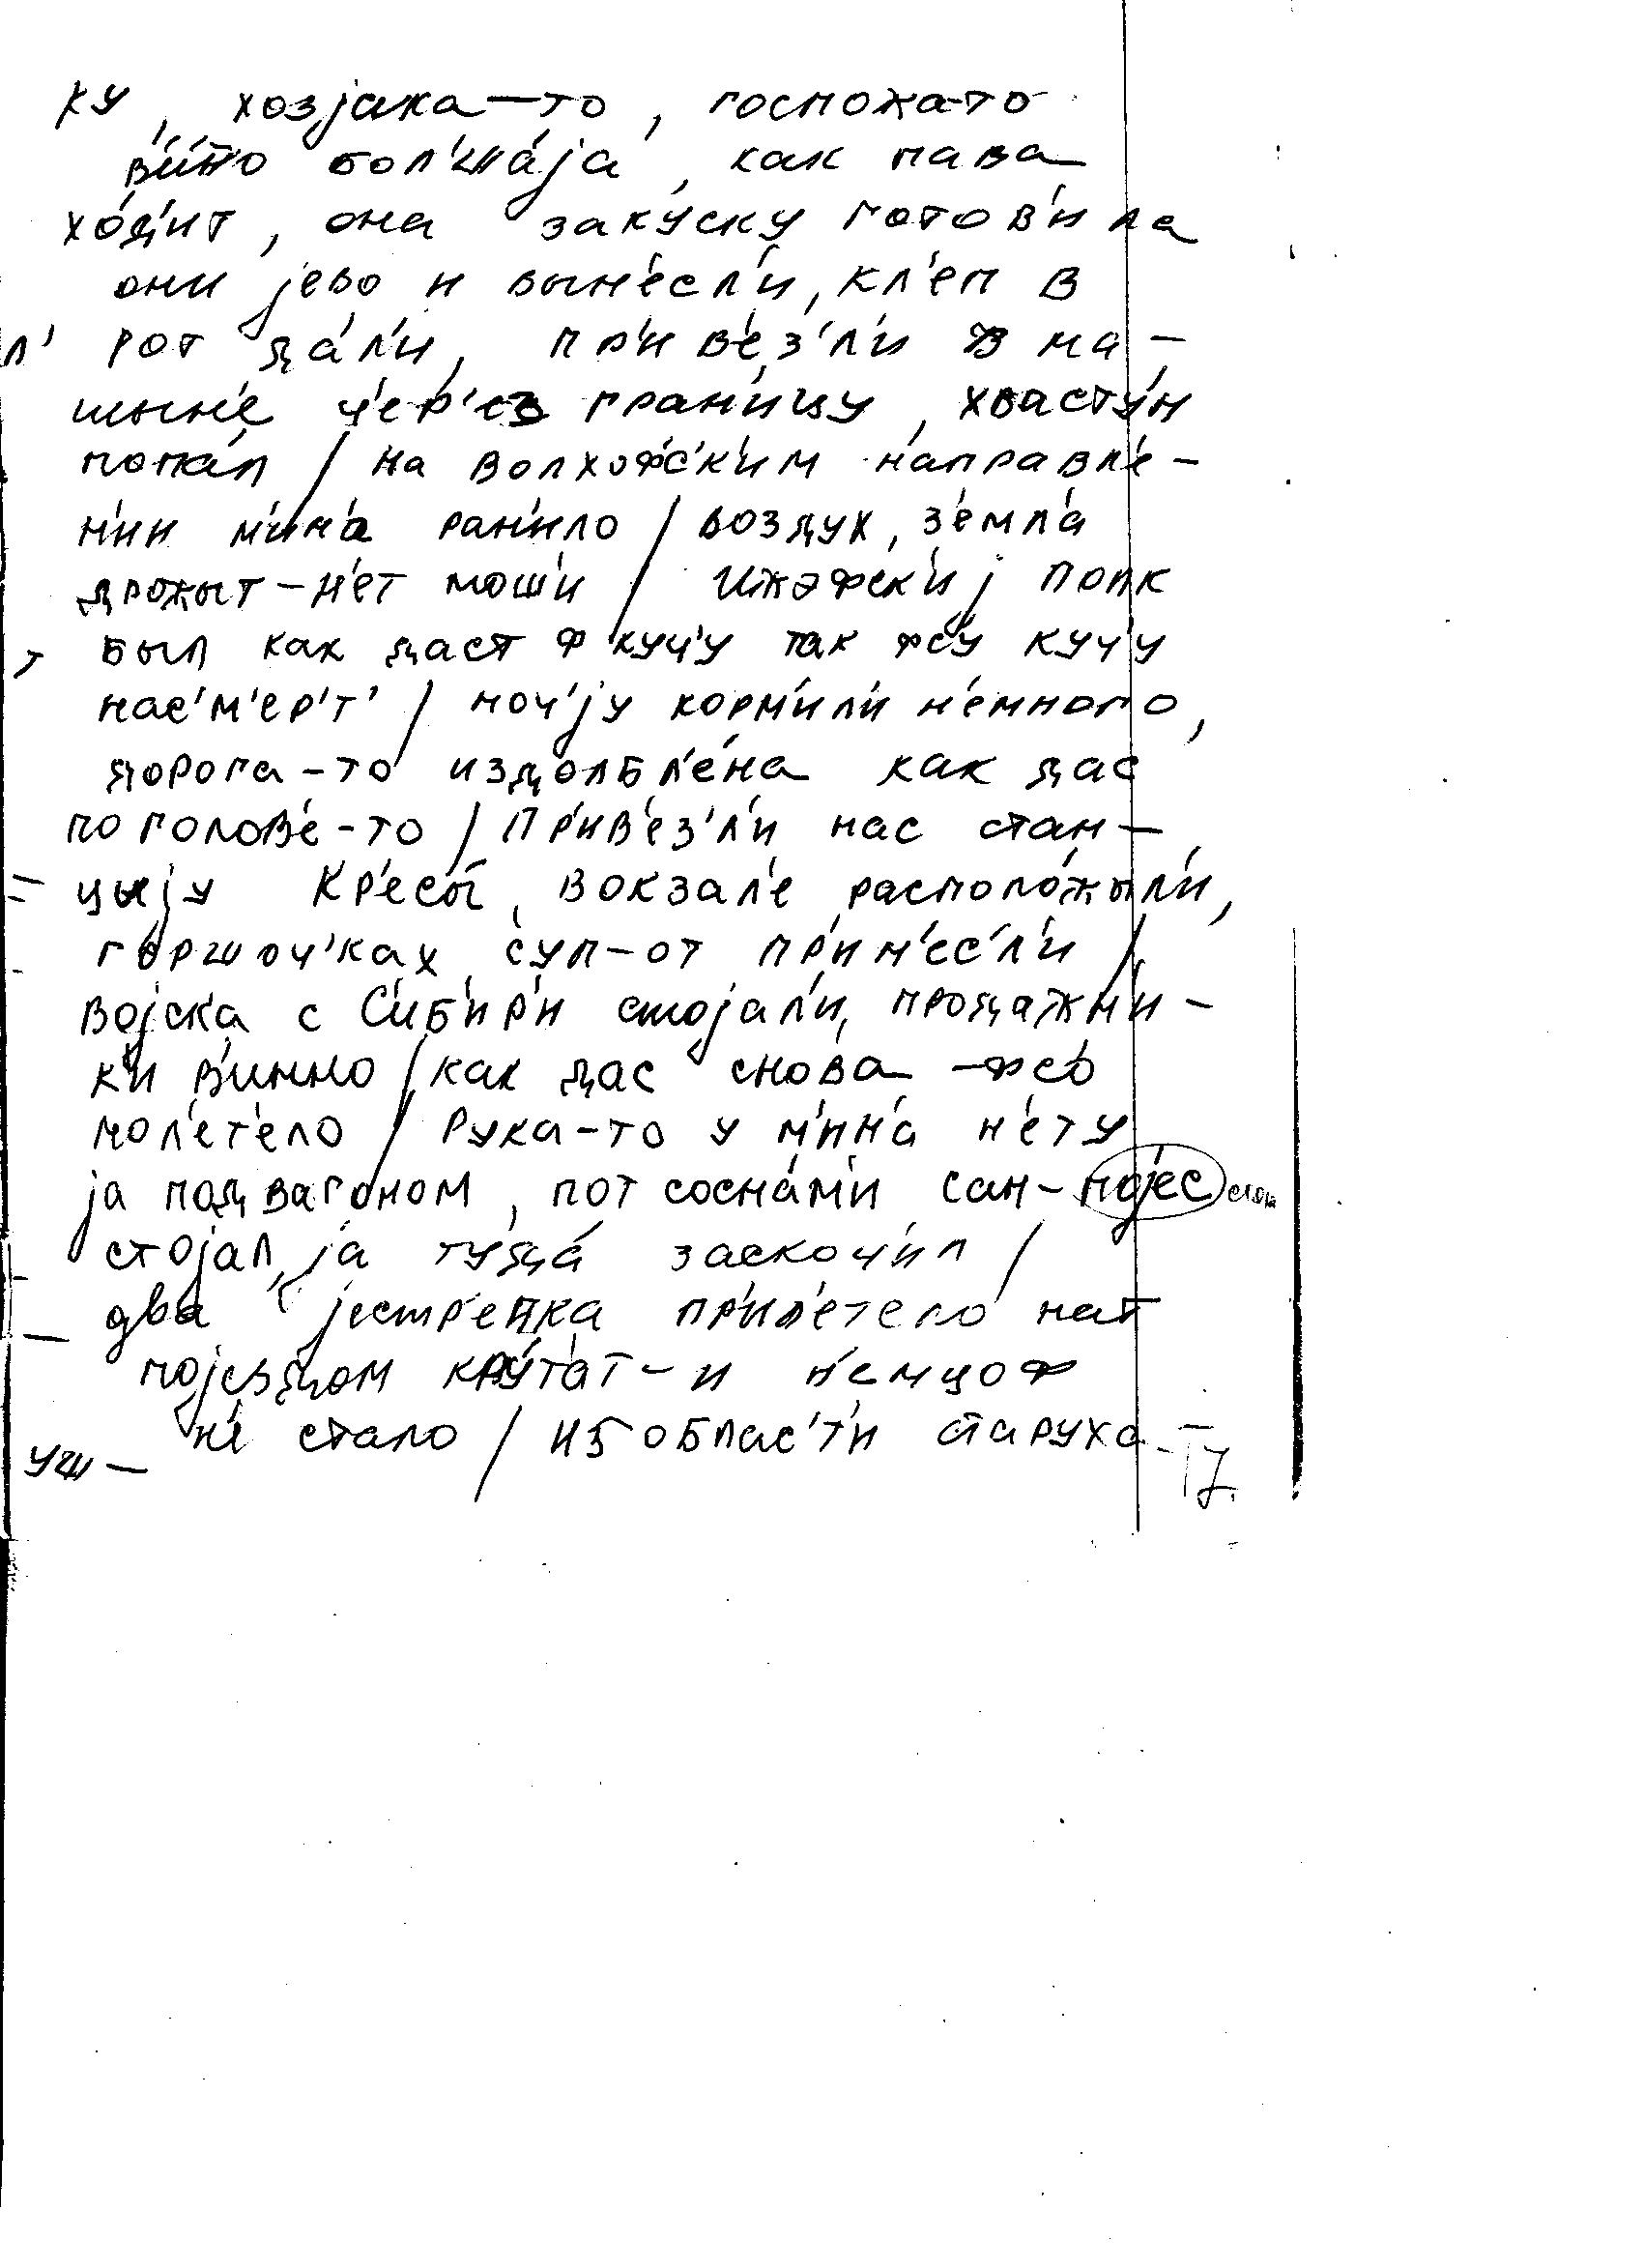 ку, хозјака-то, госпожа-то
в'и́но бол'ша́ја, как пава
хо́д'ит, она закуску готов'ила
они јево и вын'есл'и, кл'еп в
л' рот да́л'и, пр'ив'ез'л'и в ма-
шын'е ч'ер'ез гран'ицу, хвасту́н
попа́л / на волхофс'к'им направл'е-
н'ии м'ин'а ран'ило / воздух, з'емл'а
дрожыт - н'ет мош'и / Ижэфск'иј полк
т был как даст ф куч'у так фс'у куч'у
нас'м'ер'т' / ноч'ју корм'ил'и н'емного,
дорога-то издолбл'ена как дас
по голов'е-то / Пр'ив'ез'л'и нас стан-
цыју Кр'есты́, вокзал'е располо́жыл'и,
горшоч'ках суп-от пр'ин'ес'л'и /
војска с С'иб'ир'и стојал'и, продажн'и-
к'и в'инно / как дас снова - фс'о
пол'ет'ело / Рука-то у м'ин'а н'ету
ја под вагоном, пот сосна́м'и сан-појес
стојал, ја туда́ заскоч'ил /
два јестр'епка пр'ил'ет'ело нат
појездом кру́т'ат - и н'емцоф
н'е стало / из област'и старуха-
уш- 17.